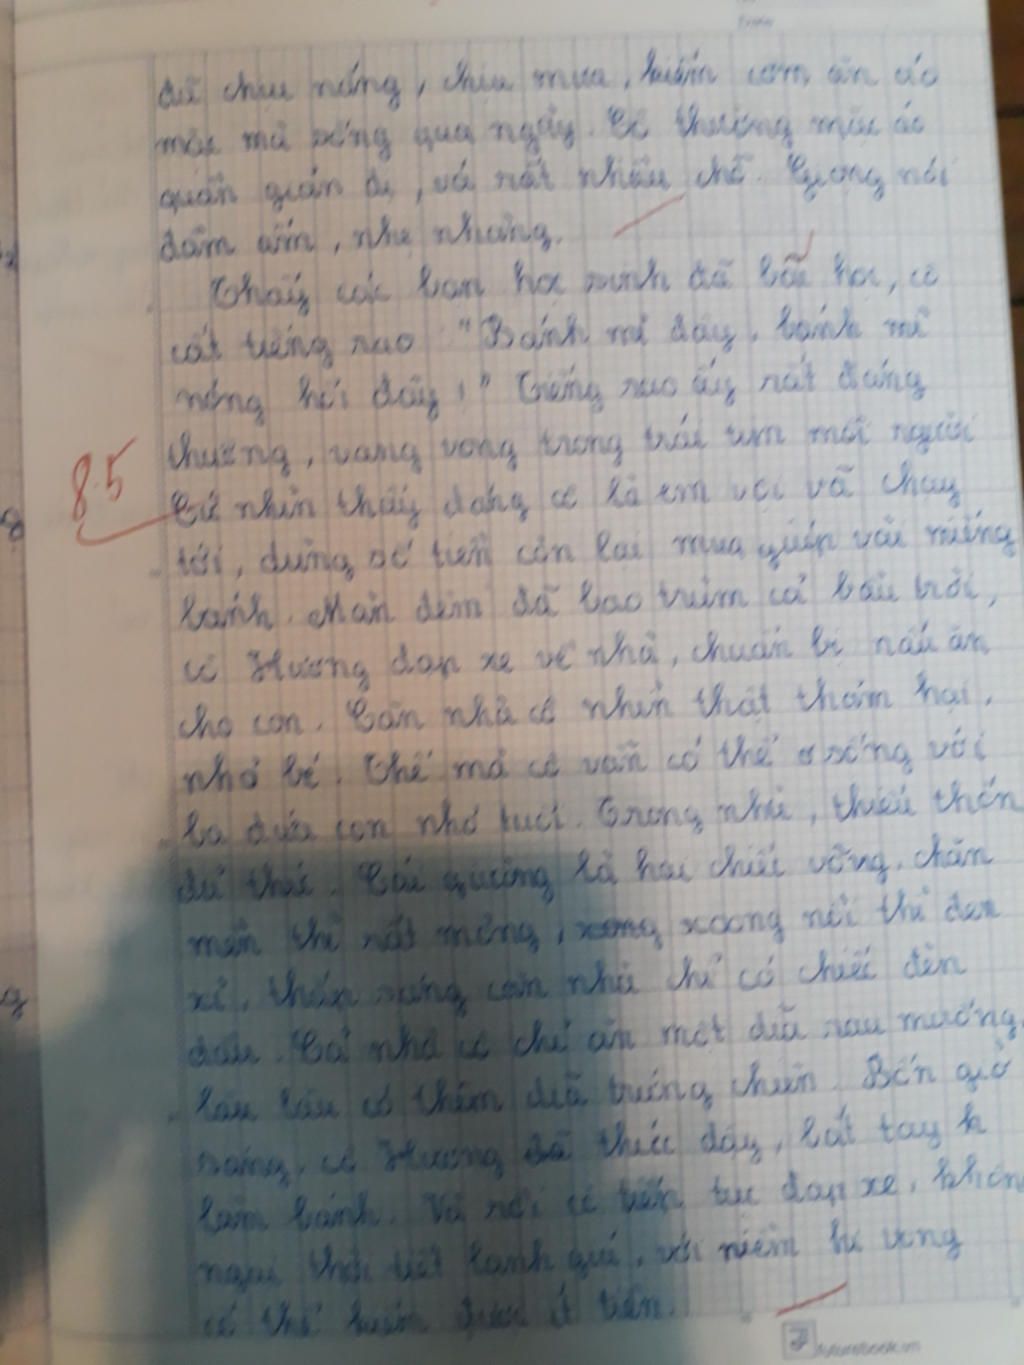 để chịu nắng, chịu mưa, kiếm cơm ăn áo
mặc mà sống qua ngày. Cô thường mặc áo
quần giản dị, vá rất nhiều chỗ. Giọng nói
đầm ấm, nhẹ nhàng.
Thấy các bạn học sinh đã học, cô
cất tiếng rao "Bánh mì đây, bánh mì
nóng hổi đây!" Tiếng rao ấy rất đáng
thương, vang vọng trong trái tim mỗi người
8.5
Cứ nhìn thấy dáng cô là em vội vã chạy
tới, dùng số tiền còn lại mua giúp vài miếng
bánh. Màn đêm đã bao trùm cả bầu trời,
cô Hương đạp xe về nhà, chuẩn bị nấu ăn
cho con. Căn nhà cô nhìn thật thảm hại,
nhỏ bé. Thế mà cô vẫn có thể sống với
ba đứa con nhỏ tuổi. Trong nhà, thiếu thốn
đủ thứ. Cái giường là hai chiếc võng, chăn
mền thì rất mỏng, xoong nồi thì đen
xì, thắp sáng căn nhà chỉ có chiếc đèn
dầu. Cả nhà cô chỉ ăn một đĩa rau muống,
lâu lâu có thêm đĩa trứng chiên. Bốn giờ
sáng, cô Hương đã thức dậy, bắt tay
làm bánh. Và rồi cô tiếp tục đạp xe,
ngại thời tiết lạnh giá, với niềm hi vọng
có thể kiếm được ít tiền.
futurebook.vn